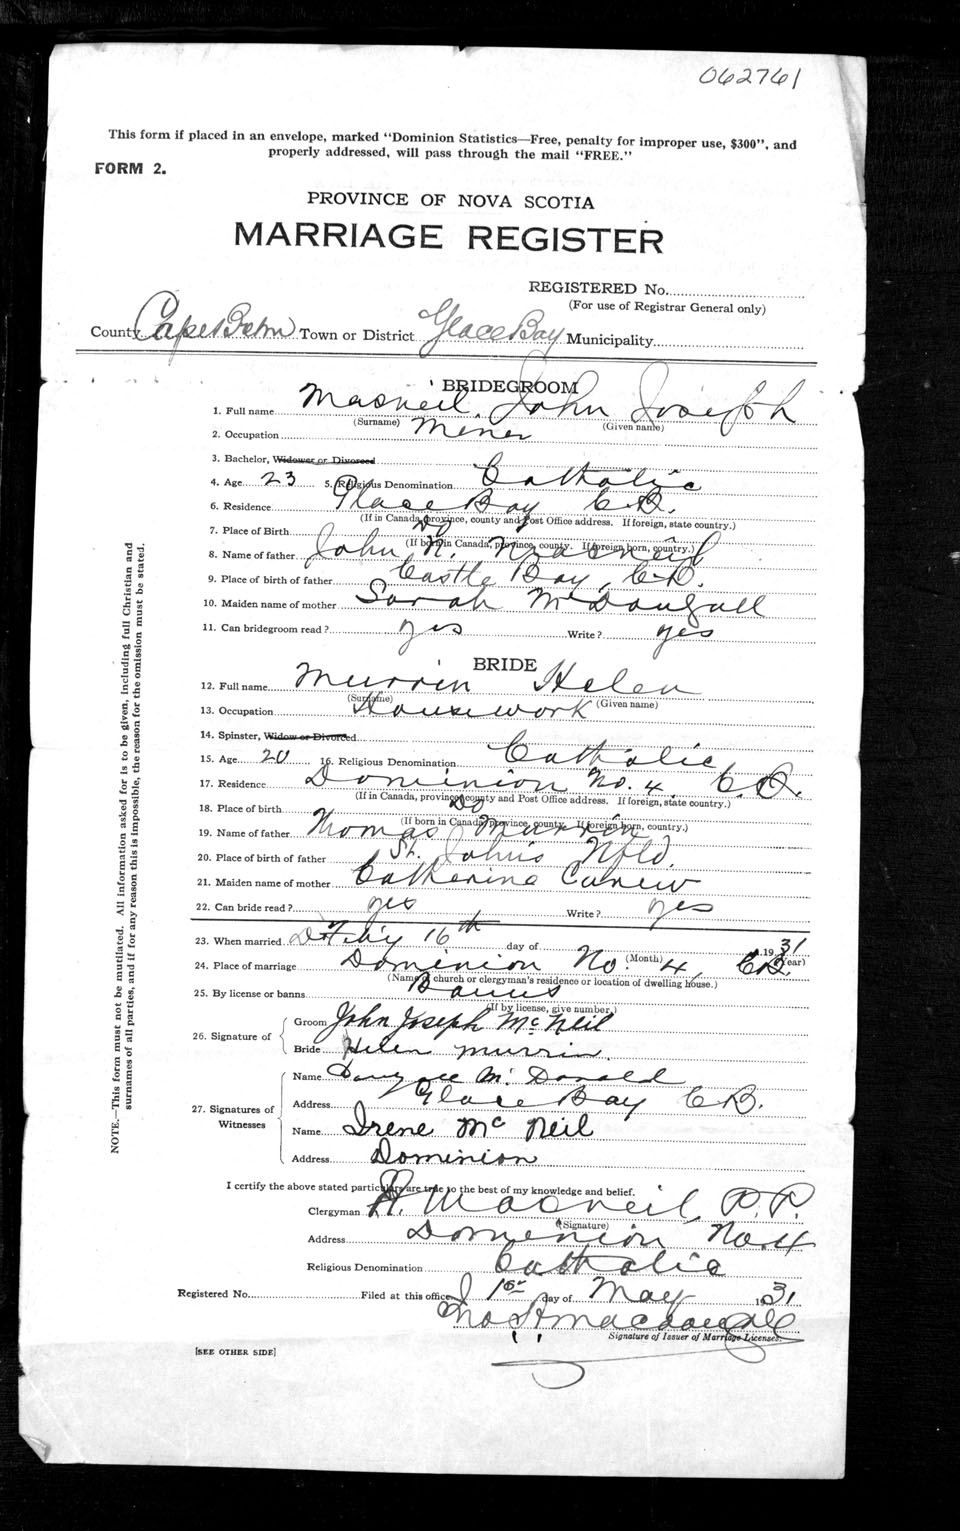 062761
This form if placed in an envelope, marked "Dominion Statistics—Free, penalty for improper use, $300", and
properly addressed, will pass through the mail "FREE."
FORM 2.
PROVINCE OF NOVA SCOTIA
MARRIAGE REGISTER
REGISTERED No.
(For use of Registrar General only)
County Cape Breton Town or District Glace Bay Municipality
BRIDEGROOM
1. Full name Macneil, John Joseph
(Surname) (Given name)
2. Occupation Miner
3. Bachelor, Widower or Divorced
4. Age 23 5. Religious Denomination Catholic
6. Residence Glace Bay C.B.
(If in Canada, province, county and Post Office address. If foreign, state country.)
7. Place of Birth Do
(If born in Canada, province, county. If foreign born, country.)
8. Name of father John N. Macneil
9. Place of birth of father Castle Bay, C.B.
10. Maiden name of mother Sarah McDougall
11. Can bridegroom read? yes Write? yes
BRIDE
12. Full name Murrin Helen
(Surname) (Given name)
13. Occupation Housework
14. Spinster, Widow or Divorced
15. Age 20 16. Religious Denomination Catholic
17. Residence Dominion No. 4, C.B.
(If in Canada, province, county and Post Office address. If foreign, state country.)
18. Place of birth Do
(If born in Canada, province, county. If foreign born, country.)
19. Name of father Thomas Murrin
20. Place of birth of father St. John's Nfld.
21. Maiden name of mother Catherine
22. Can bride read? yes Write? yes
23. When married Feb'y 16th day of 1931
(Month) (Year)
24. Place of marriage Dominion No. 4, C.B.
(Name of church or clergyman's residence or location of dwelling house.)
25. By license or banns Banns
(If by license, give number.)
26. Signature of
Groom John Joseph McNeil
Bride Helen Murrin
27. Signatures of Witnesses
Name McDonald
Address Glace Bay C.B.
Name Irene McNeil
Address Dominion
I certify the above stated particulars are true to the best of my knowledge and belief.
Clergyman Macneil P.P.
(Signature)
Address Dominion No. 4
Religious Denomination Catholic
Registered No. Filed at this office 1st day of May 1931
Macdougall
Signature of Issuer of Marriage Licenses.
[SEE OTHER SIDE]
NOTE.—This form must not be mutilated. All information asked for is to be given, including full Christian and
surnames of all parties, and if for any reason this is impossible, the reason for the omission must be stated.